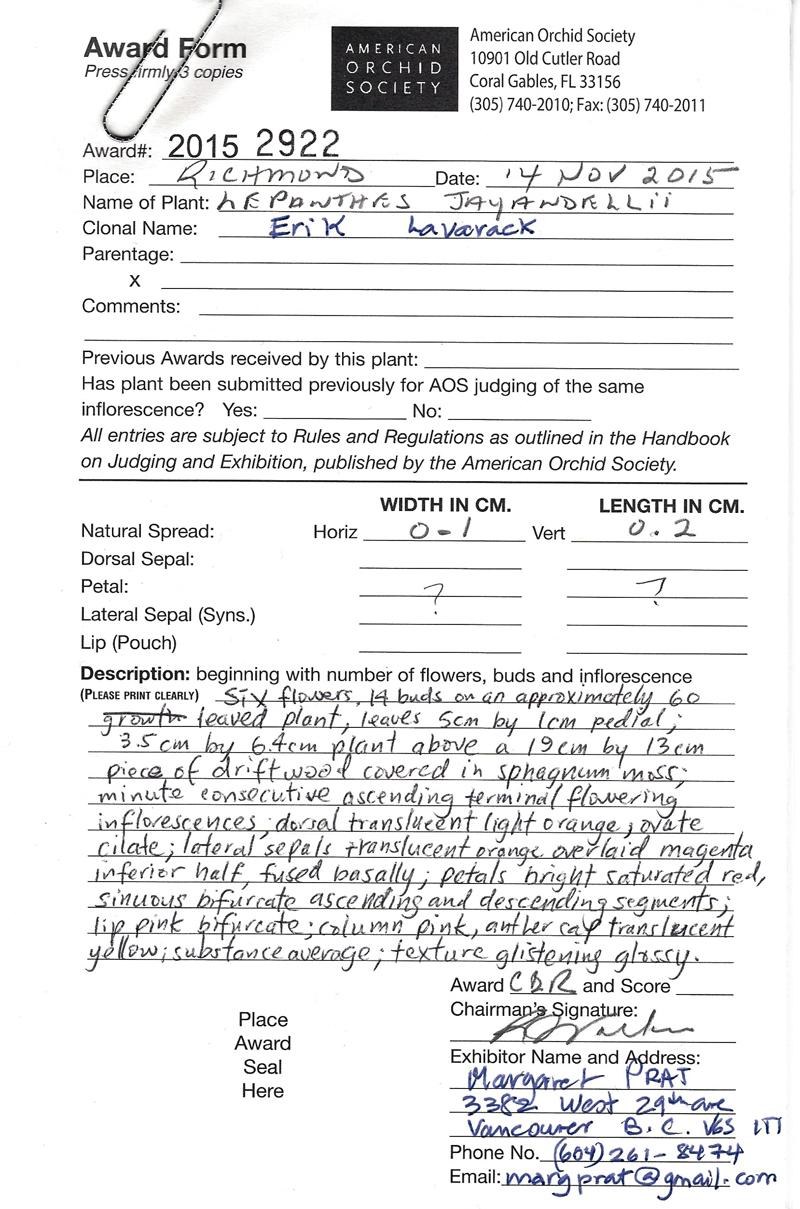 Award Form
Press firmly 3 copies
AMERICAN
ORCHID
SOCIETY
American Orchid Society
10901 Old Cutler Road
Coral Gables, FL 33156
(305) 740-2010; Fax: (305) 740-2011
Award#: 2015 2922
Place: RICHMOND Date: 14 NOV 2015
Name of Plant: LEPANTHES JAYANDELLii
Clonal Name: EriK Lavarack
Parentage:
x
Comments:
Previous Awards received by this plant:
Has plant been submitted previously for AOS judging of the same
inflorescence? Yes: No:
All entries are subject to Rules and Regulations as outlined in the Handbook
on Judging and Exhibition, published by the American Orchid Society.
WIDTH IN CM. LENGTH IN CM.
Natural Spread: Horiz 0-1 Vert 0.2
Dorsal Sepal:
Petal: ? ?
Lateral Sepal (Syns.)
Lip (Pouch)
Description: beginning with number of flowers, buds and inflorescence
(PLEASE PRINT CLEARLY) Six flowers, 14 buds on an approximately 60
growth leaved plant, leaves 5cm by 1cm pedial;
3.5cm by 6.4cm plant above a 19cm by 13cm
piece of driftwood covered in sphagnum moss;
minute consecutive ascending terminal flowering
inflorescences; dorsal translucent light orange; ovate
cilate; lateral sepals translucent orange overlaid magenta
inferior half, fused basally; petals bright saturated red,
sinuous bifurcate ascending and descending segments;
lip pink bifurcate; column pink, anther cap translucent
yellow; substance average; texture glistening glossy.
Award CBR and Score
Chairman's Signature:
Place
Award
Seal
Here
Exhibitor Name and Address:
Margaret PRAT
3382 West 29th ave
Vancouver B.C. V6S 1T1
Phone No. (604) 261-8474
Email: margprat@gmail.com